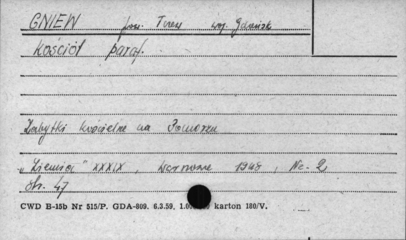 GNIEW pow. Tczew woj. Gdańsk
Kościół paraf.
Zabytki kościelne na Pomorzu
"Ziemia" XXXIX, Warszawa 1948, Nr. 2
str. 47
CWD B-15b Nr 515/P. GDA-809. 6.3.59. 1.0 karton 180/V.